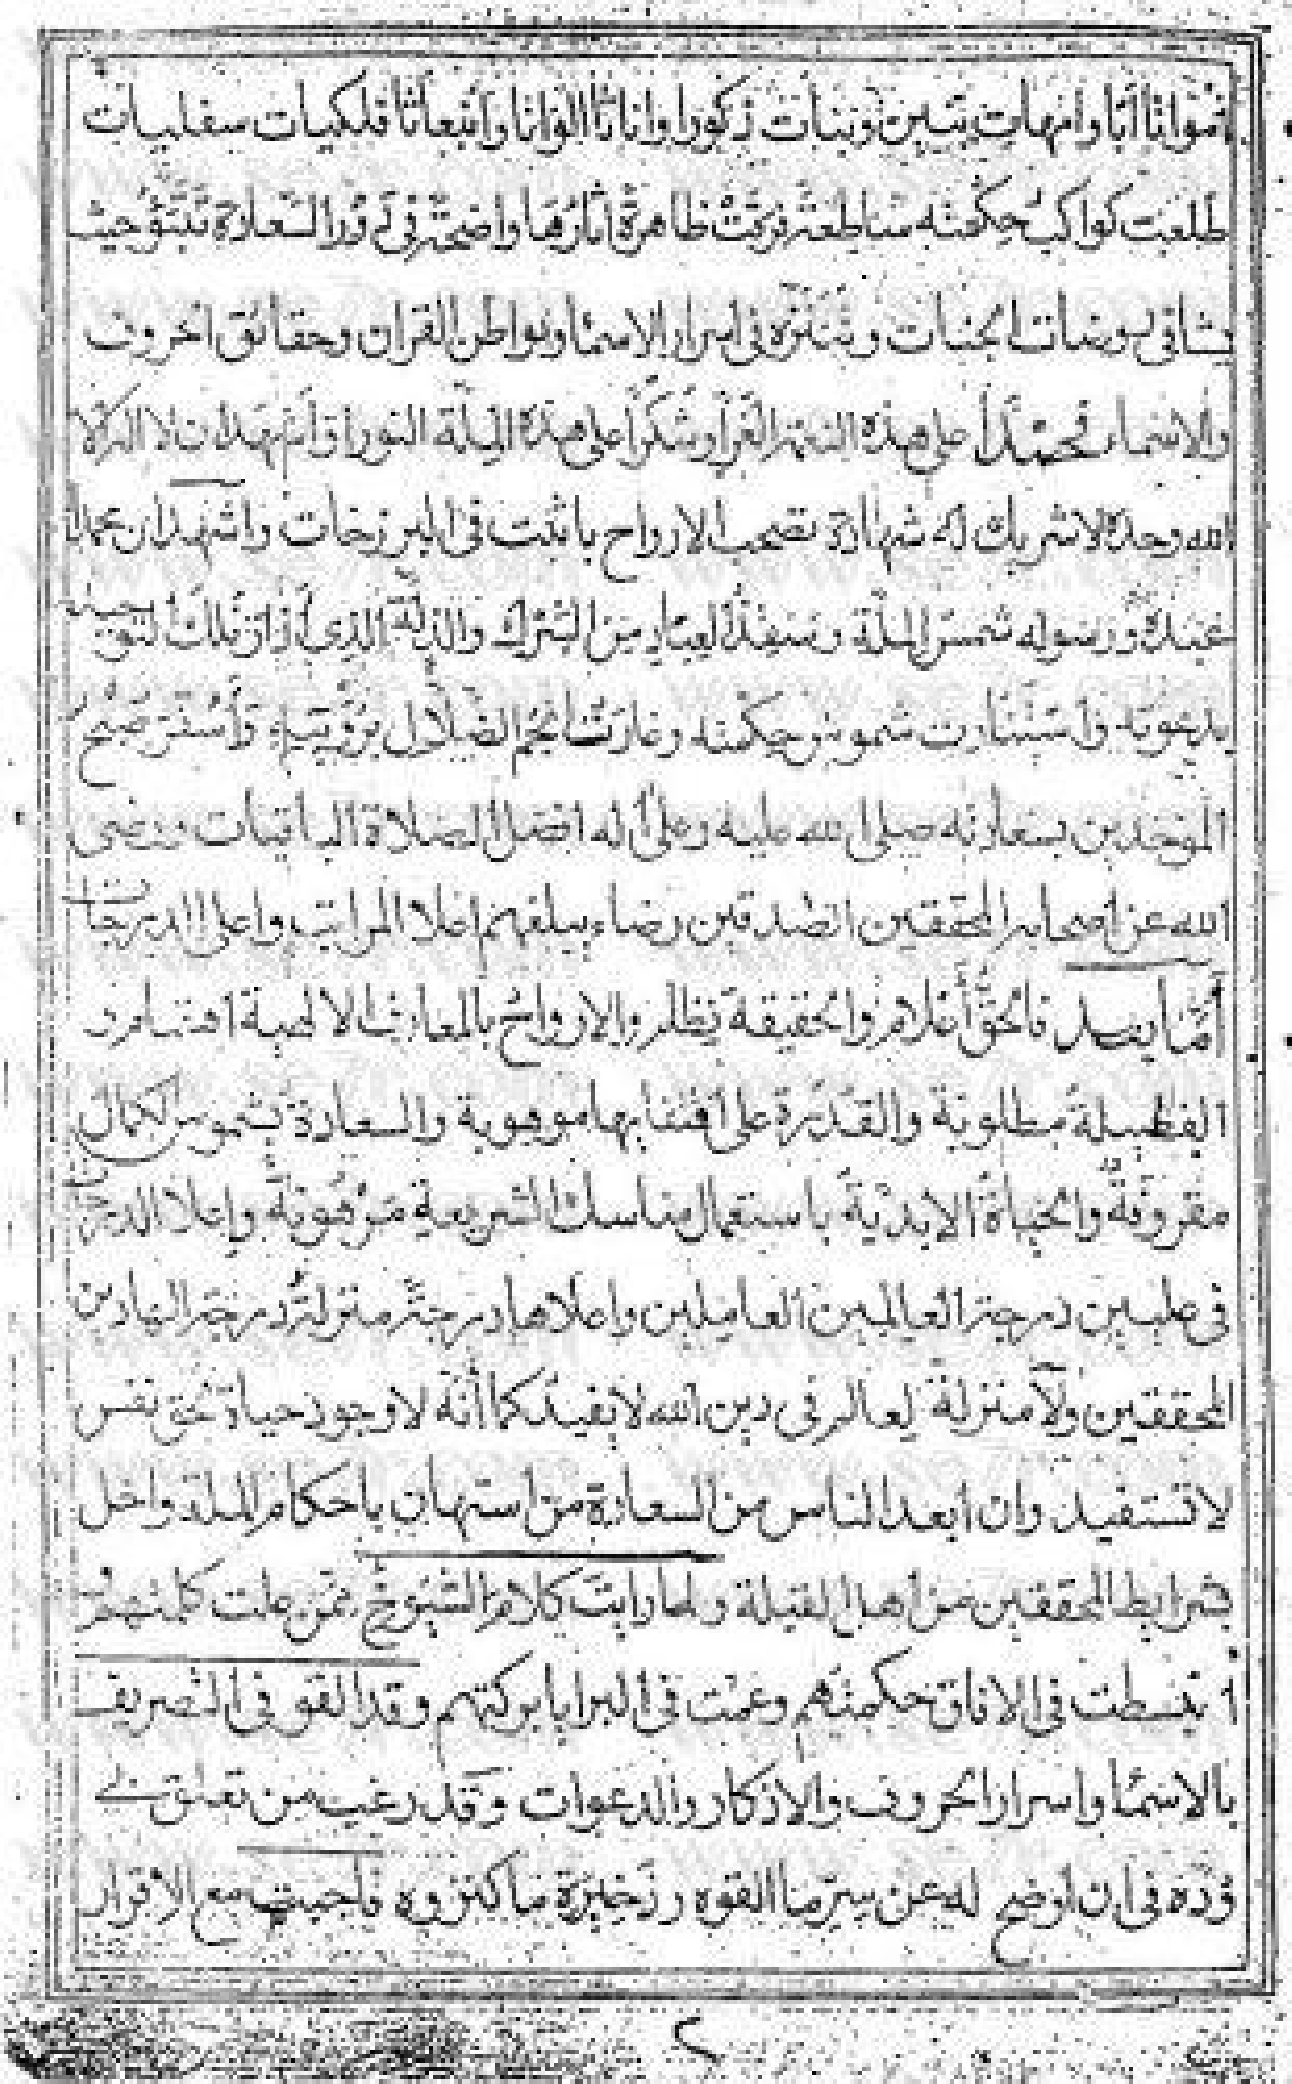 أمواتا أبا وامهات بنين وبنات ذكورا واناثا الوانا وأتباعا فلكيات سفليات
طلعت كواكب حكمته ساطعة فرقت ظاهرة اثارها واضحة في تم دور السعادة تتبوؤ حيث
يشا في روضات الجنات ويتنزه في اسرار الاسما وبواطن القران وحقائق الحروف
والاسما فحمدا على هذه النعم الغرا وشكرا على هذه الملة النورا وأشهد ان لا اله الا
الله وحده لا شريك له شهادة تصحب الارواح باثبت في البرزخات واشهد ان محمدا
عبده ورسوله شمس الملة ومنقذ العباد من الشرك والذلة الذي أدار فلك التوحيد
بدعوته واستنارت شموس حكمته وغارت انجم الضلال برؤيته وأسفر صبح
الموحدين بسعادته صلى الله عليه وعلى اله افضل الصلاة الباقيات ورضى
الله عن اصحابه المحققين الصديقين رضاء يبلغهم اعلا المراتب واعلى الدرجات
أما بعد فالحق أعلام والحقيقة نظام والارواح بالمعارف الالهية اقسام
الفضيلة مطلوبة والقدرة على اقتنائها موهوبة والسعادة بشموس الكمال
مقرونة والحياة الابدية باستعمال مناسك الشريعة مرهونة واعلا الدرجات
في عليين درجة العالمين العاملين واعلاها درجة منزلة درجة الهادين
المحققين ولا منزلة لعالم في دين الله لا يفيد كما أنه لا وجود حياة بحق نفس
لا تستفيد وان ابعد الناس من السعادة من استهان باحكام الملة واخل
بشرايط المحققين من أهل القبلة ولما رايت كلام الشيوخ ممن علت كلمتهم
أ نبسطت في الافاق حكمتهم وعمت في البرايا بركتهم وقد القو في التصريف
بالاسما واسرار الحروف والاذكار والدعوات وقد رغب من تعلق لي
وده في ان اوضح له عن سر ما القوه وذخيرة ما كنزوه فأجبت مع الاقرار
٢